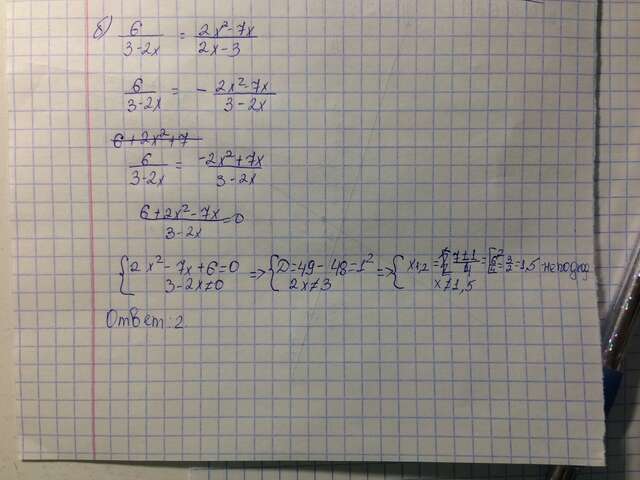 б) 6/(3-2x) = (2x²-7x)/(2x-3)
6/(3-2x) = - (2x²-7x)/(3-2x)
6+2x²+7
6/(3-2x) = (-2x²+7x)/(3-2x)
(6+2x²-7x)/(3-2x) = 0
{2x²-7x+6=0 => {D=49-48=1² => {x₁,₂ = 7±1/4 = [2 6/4 = 3/2 = 1,5 не подход
3-2x≠0 2x≠3 x≠1,5
Ответ: 2.